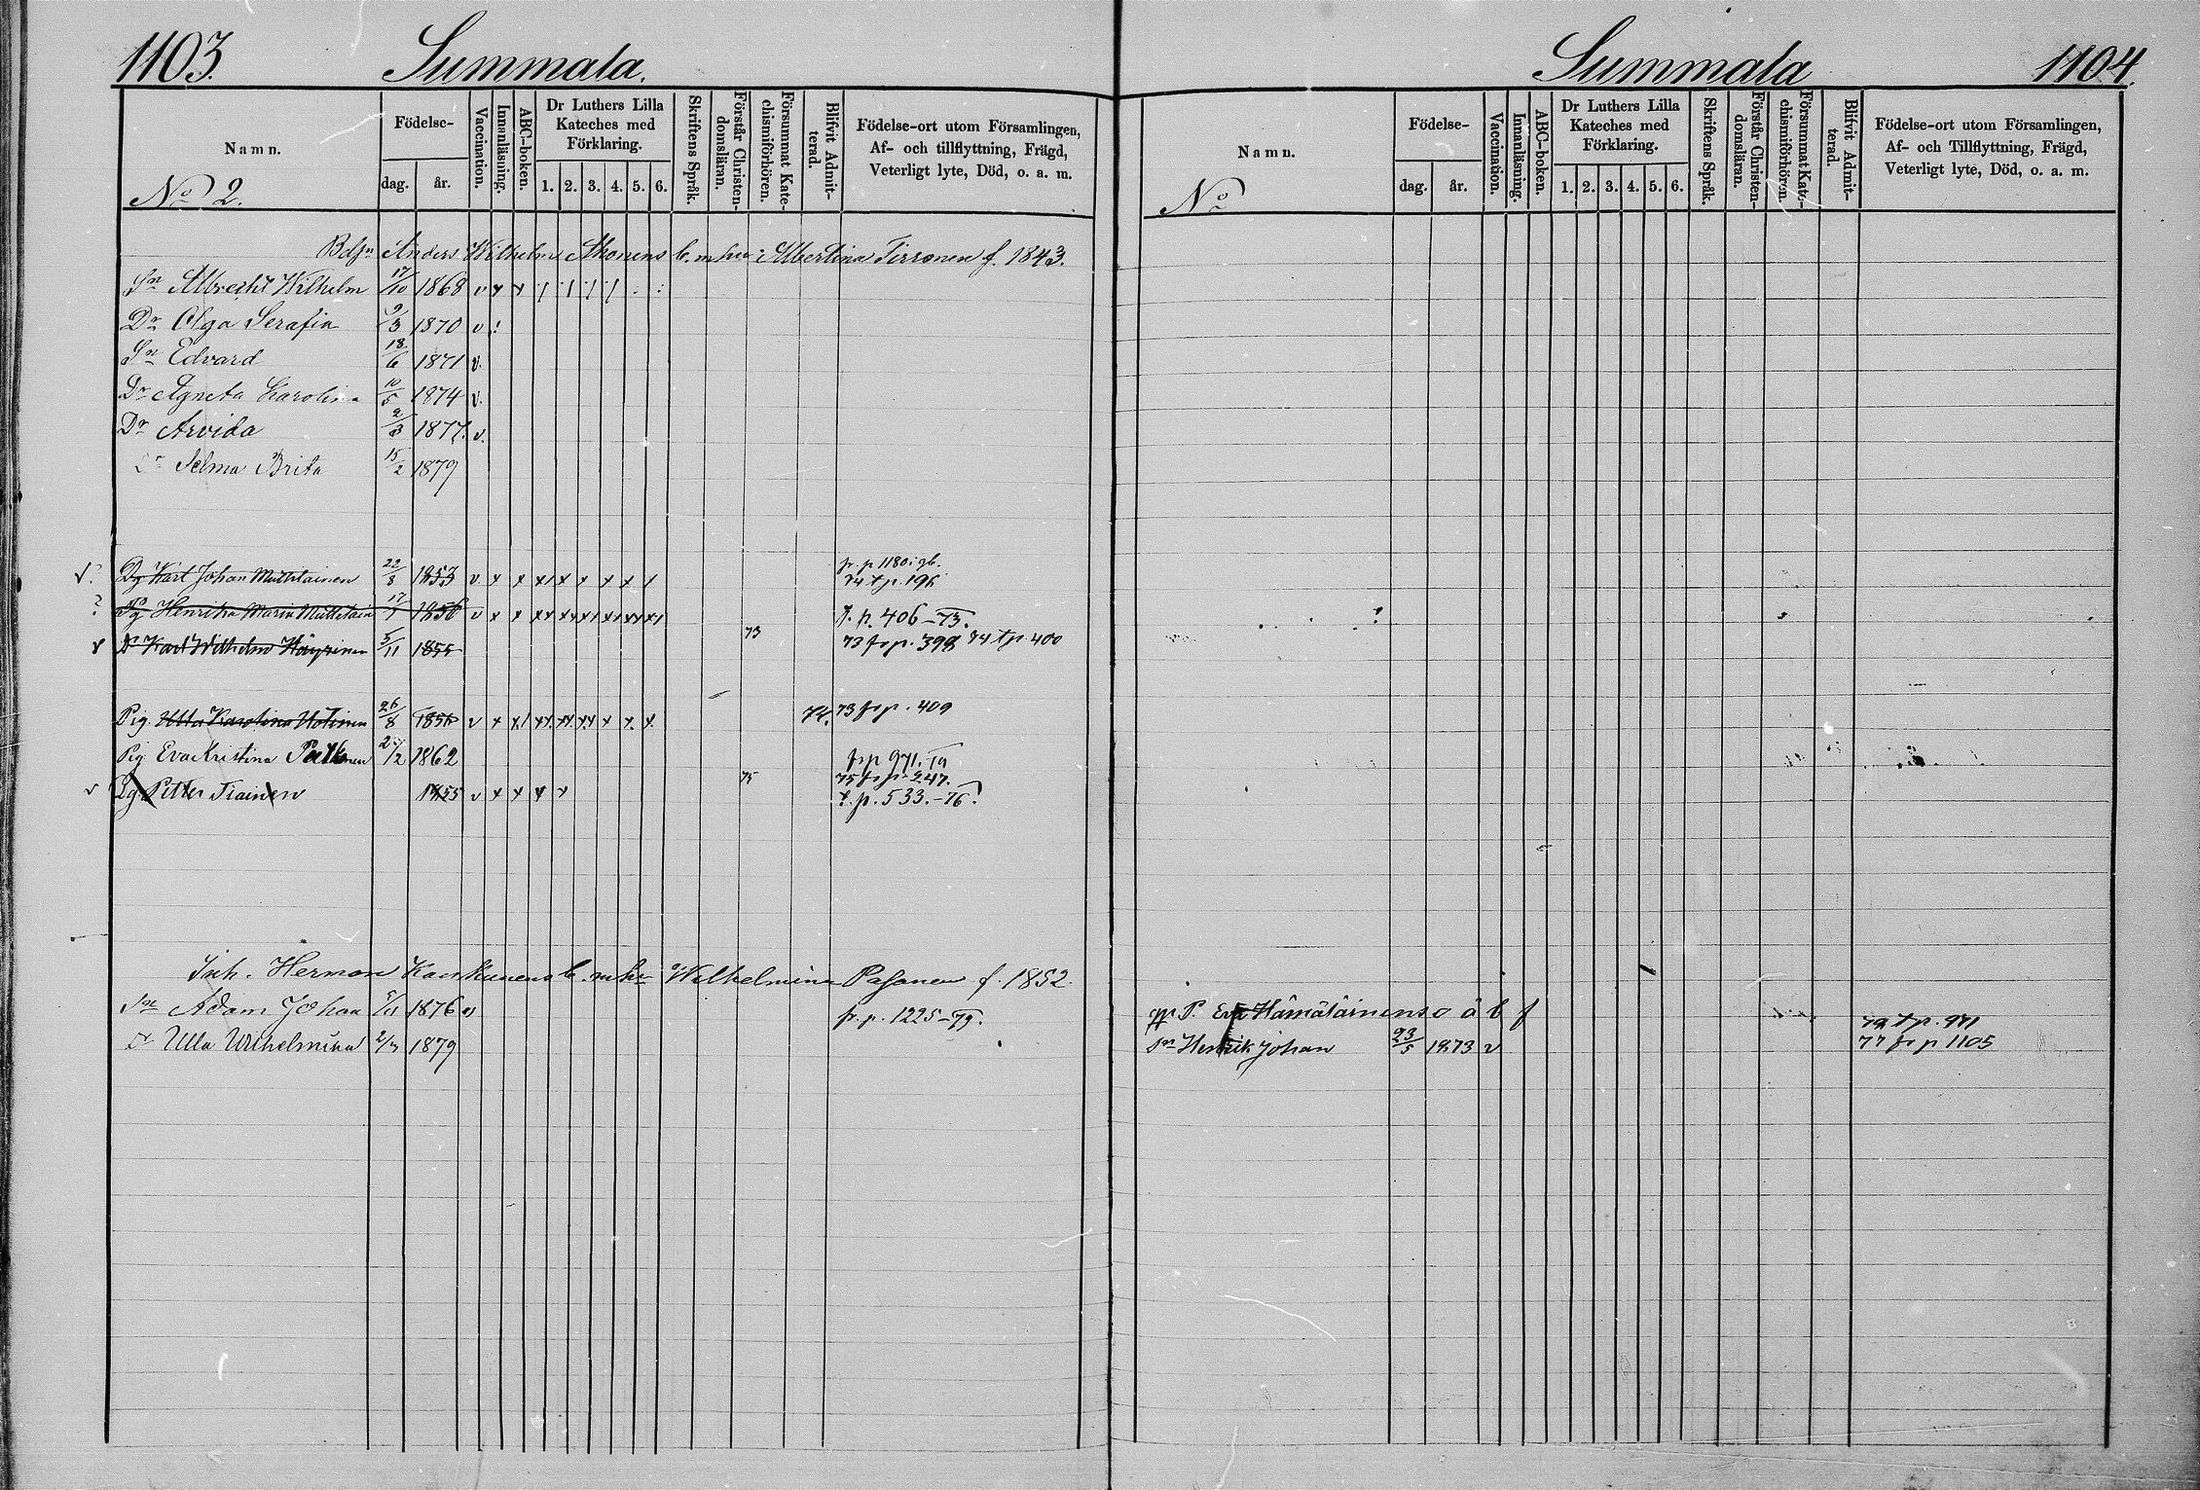 1103.
Summala.
Namn.
No 2.
Födelse-
dag.
år.
Vaccination.
Innanläsning.
ABC-boken.
Dr Luthers Lilla
Kateches med
Förklaring.
1. 2. 3. 4. 5. 6.
Skriftens Språk.
Förstår Christen-
domsläran.
Försummat Kate-
chismiförhören.
Blifvit Admit-
terad.
Födelse-ort utom Församlingen,
Af- och tillflyttning, Frägd,
Veterligt lyte, Död, o. a. m.
Anders Wilhelm b. m. hu: Albertina Tirronen f. 1843.
Sn Albrecht Wilhelm 17/10 1868 v x x
Dr Olga Serafia 9/3 1870 v
Sn Edvard 18/6 1871 v.
Dr Agneta Karolina 10/5 1874 v.
Dr Arvida 2/3 1877. v.
Selma Brita 15/2 1879
√? Dg Karl Johan 22/8 1853 v. x x x x x x
fr. p 1180
74 t p. 196
? Pg Henrika Maria 17 1856 v x x
t. p. 406-73.
v Karl Wilhelm 5/11 1855 73 73 fr p. 398 74 t p. 400
Pig. Karolina 26/8 1856 v x 74. 73 fr p. 409
Pig Eva Kristina 1862 fr p 971.
v Dg Petter Tiainen 1855 v x x x x 75 75 fr p. 247.
t. p. 533.-76.
Inh. Herman b. m. hu Wilhelmina Pasanen f. 1852.
Sn Adam Johan 1876 v fr. p. 1225-79.
Ulla Wilhelmina 1879
Summala
1104.
Namn.
No
Födelse-
dag.
år.
Vaccination.
Innanläsning.
ABC-boken.
Dr Luthers Lilla
Kateches med
Förklaring.
1. 2. 3. 4. 5. 6.
Skriftens Språk.
Förstår Christen-
domsläran.
Försummat Kate-
chismiförhören.
Blifvit Admit-
terad.
Födelse-ort utom Församlingen,
Af- och Tillflyttning, Frägd,
Veterligt lyte, Död, o. a. m.
P. Eva Hämäläinens o ä b f
79 t p. 971
Sn Henrik Johan 23/5 1873 v 77 fr p 1105